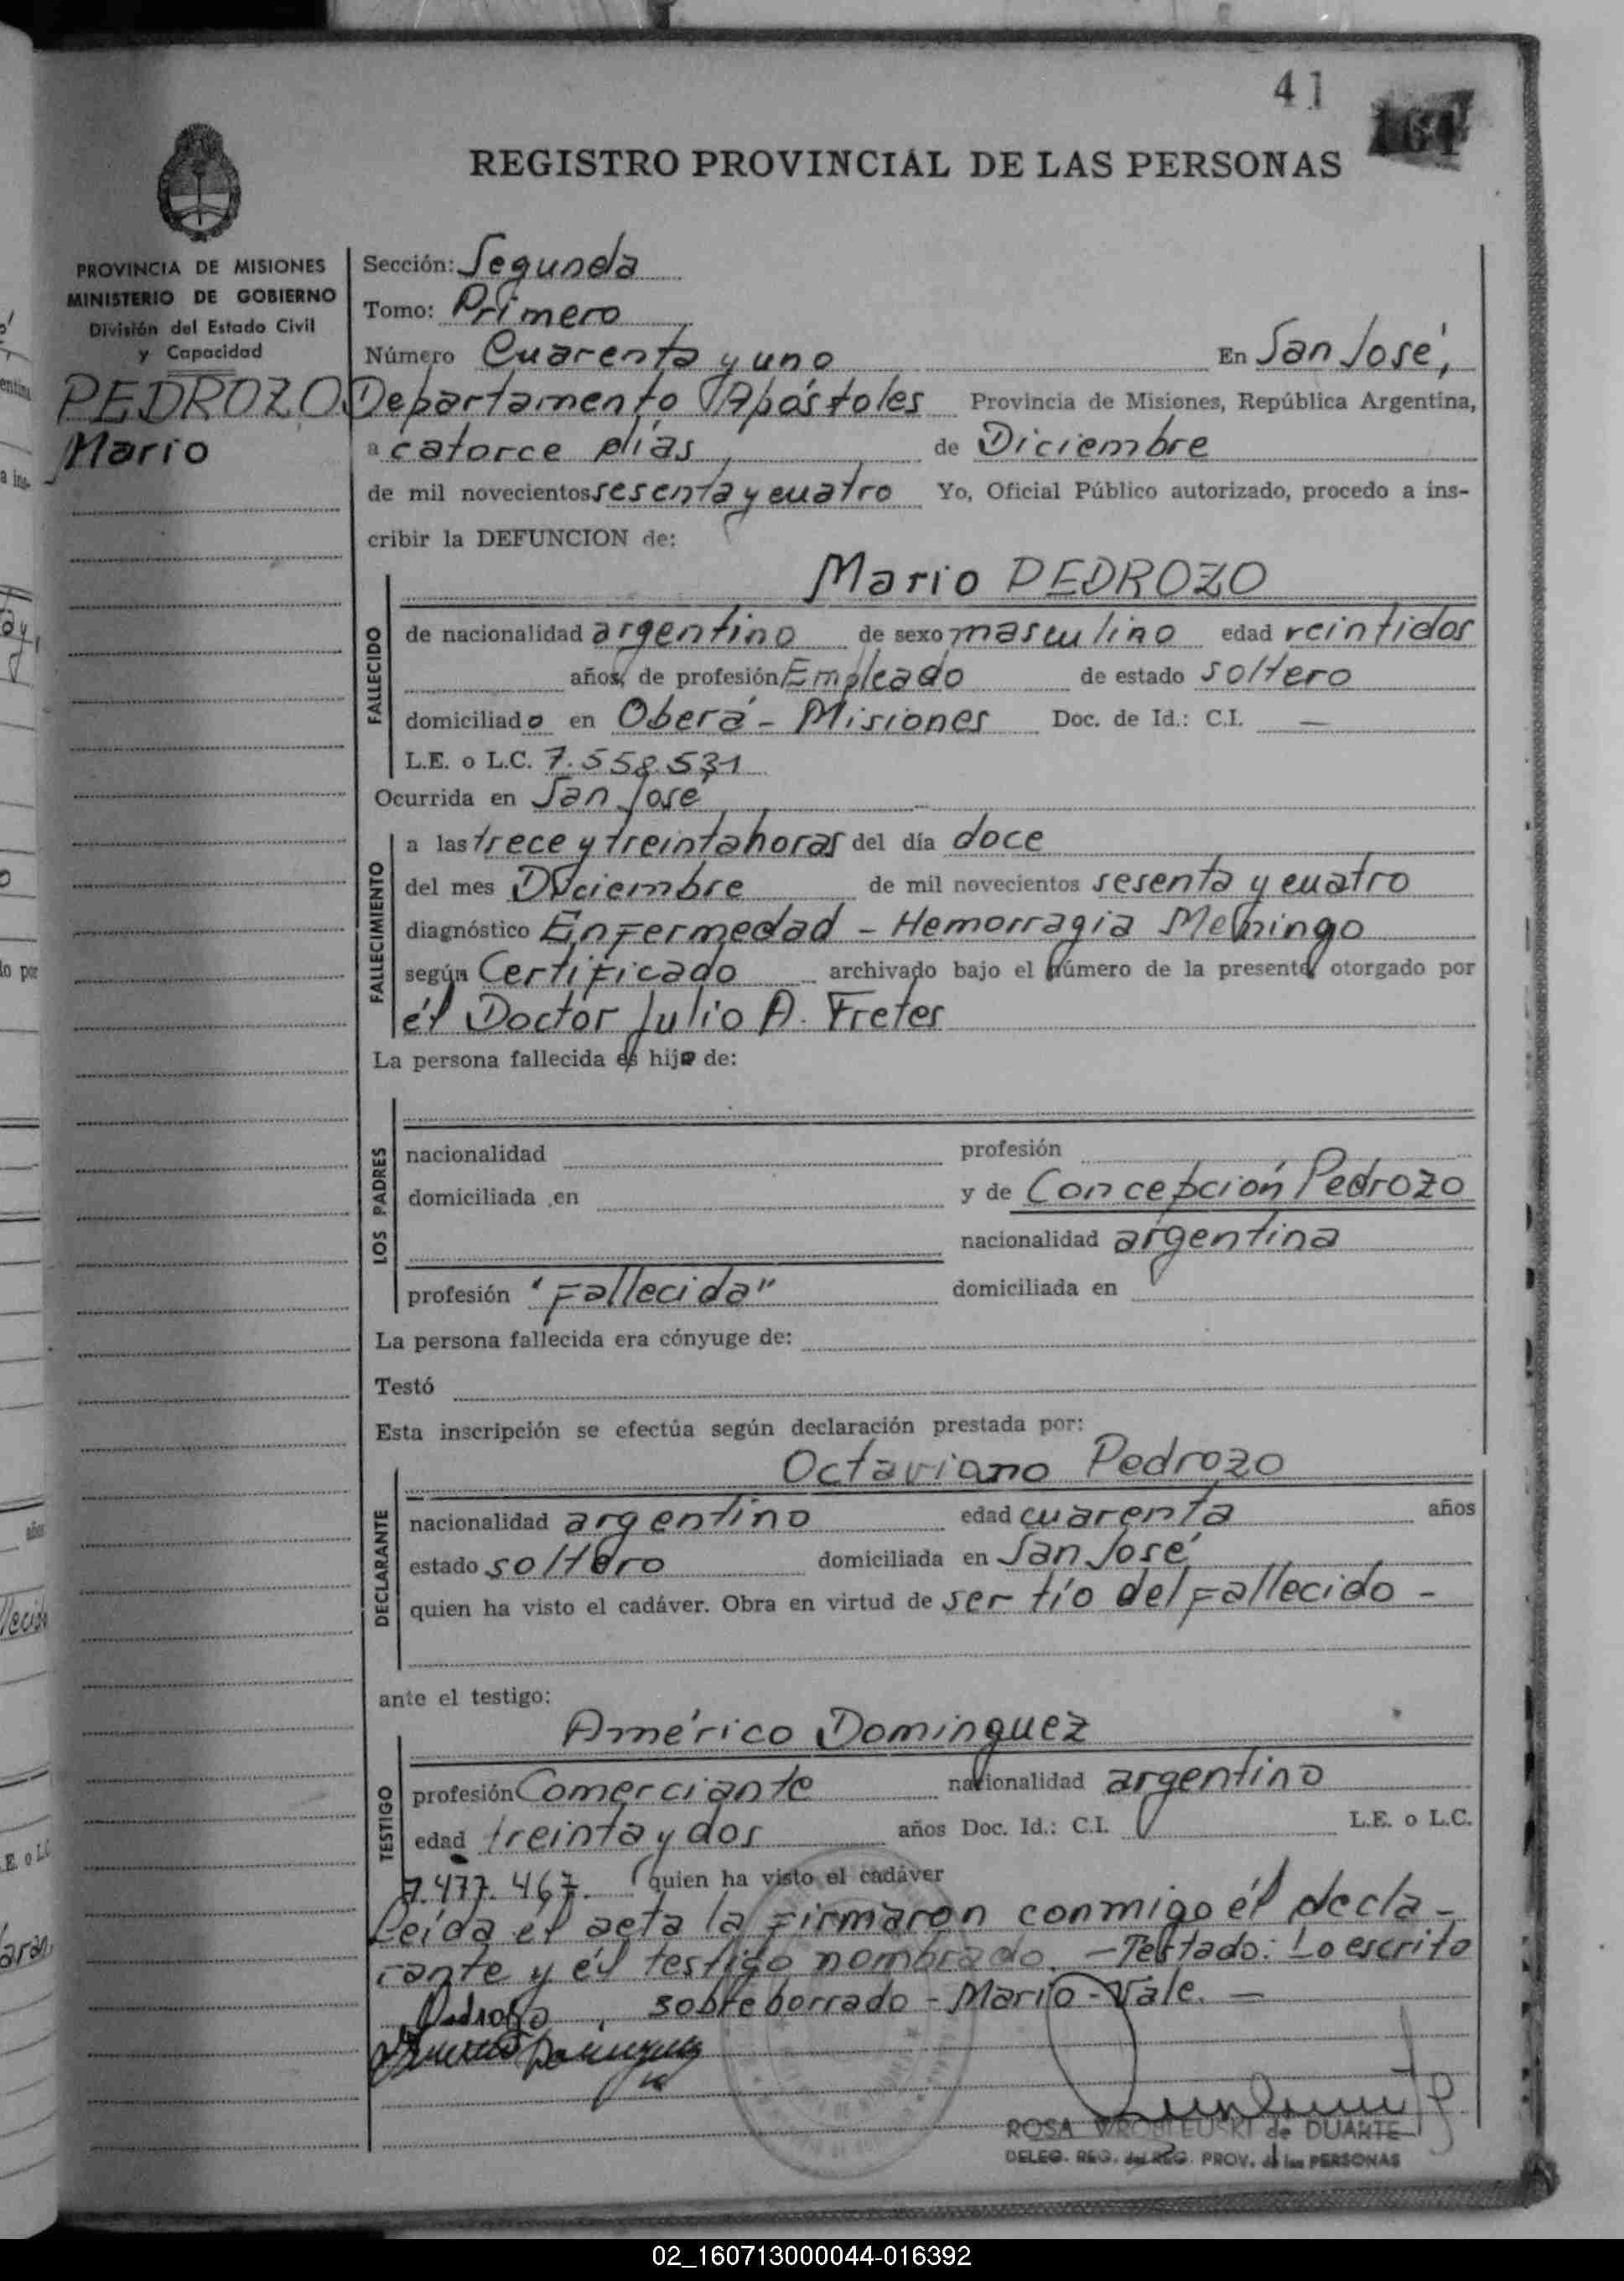 41
REGISTRO PROVINCIAL DE LAS PERSONAS
PROVINCIA DE MISIONES
MINISTERIO DE GOBIERNO
División del Estado Civil
y Capacidad
PEDROZO
Mario
Sección: Segunda
Tomo: Primero
Número Cuarenta y uno En San José,
Departamento Apóstoles Provincia de Misiones, República Argentina,
a catorce días, de Diciembre
de mil novecientos sesenta y cuatro Yo, Oficial Público autorizado, procedo a ins-
cribir la DEFUNCION de:
Mario PEDROZO
FALLECIDO
de nacionalidad argentino de sexo masculino edad veintidos
años, de profesión Empleado de estado soltero
domiciliado en Oberá - Misiones Doc. de Id.: C.I. —
L.E. o L.C. 7.558.531
Ocurrida en San José
FALLECIMIENTO
a las trece y treinta horas del día doce
del mes Diciembre de mil novecientos sesenta y cuatro
diagnóstico Enfermedad - Hemorragia Meningo
según Certificado archivado bajo el número de la presente otorgado por
él Doctor Julio A. Fretes
La persona fallecida es hijo de:
LOS PADRES
nacionalidad profesión
domiciliada en y de Concepción Pedrozo
nacionalidad argentina
profesión "Fallecida" domiciliada en
La persona fallecida era cónyuge de:
Testó
Esta inscripción se efectúa según declaración prestada por:
Octaviano Pedrozo
DECLARANTE
nacionalidad argentino edad cuarenta años
estado soltero domiciliada en San José
quien ha visto el cadáver. Obra en virtud de ser tío del fallecido -
ante el testigo:
Américo Dominguez
TESTIGO
profesión Comerciante nacionalidad argentino
edad treinta y dos años Doc. Id.: C.I. L.E. o L.C.
7.477.467. quien ha visto el cadáver
Leída él acta la firmaron conmigo él decla-
rante y él testigo nombrado. - Testado: Lo escrito
sobre borrado - Mario - Vale. —
Pedrozo
ROSA WROBLEUSKI de DUARTE
DELEG. REG. del REG. PROV. de las PERSONAS
02_160713000044-016392